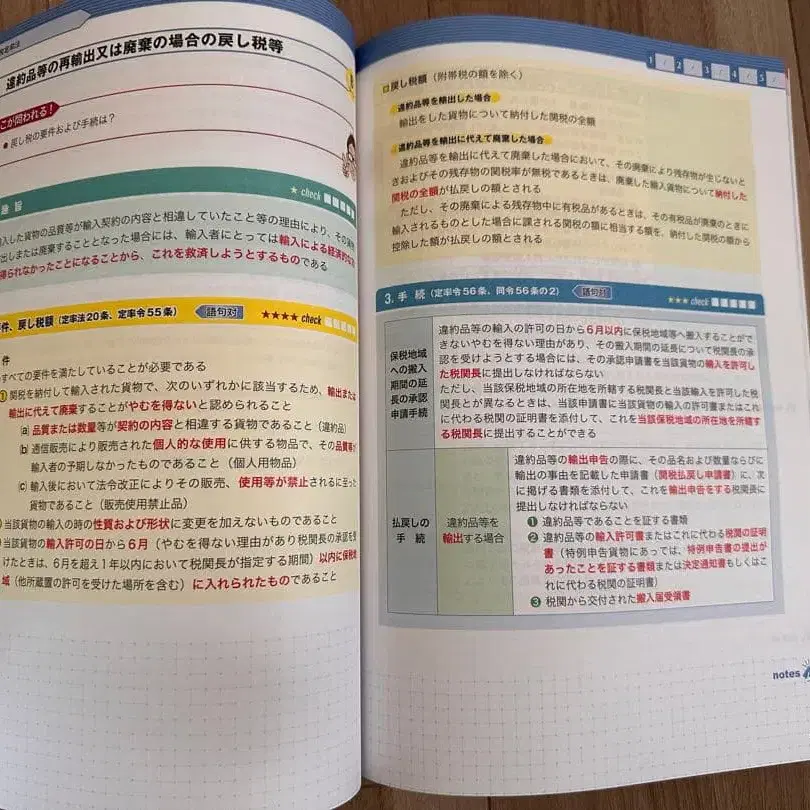 違約品等の再輸出又は廃棄の場合の戻し税等
こが問われる!
● 戻し税の要件および手続は?
趣 旨
★ check
入した貨物の品質等が輸入契約の内容と相違していたこと等の理由により、その貨
出しまたは廃棄することとなった場合には、輸入者にとっては輸入による経済的
得られなかったことになることから、これを救済しようとするものである
件、戻し税額(定率法20条、定率令55条)
語句対
★★★★ check
件
すべての要件を満たしていることが必要である
① 関税を納付して輸入された貨物で、次のいずれかに該当するため、輸出または
輸出に代えて廃棄することがやむを得ないと認められること
ⓐ 品質または数量等が契約の内容と相違する貨物であること(違約品)
ⓑ 通信販売により販売された個人的な使用に供する物品で、その品質等が
輸入者の予期しなかったものであること(個人用物品)
ⓒ 輸入後において法令改正によりその販売、使用等が禁止されるに至った
貨物であること(販売使用禁止品)
当該貨物の輸入の時の性質および形状に変更を加えないものであること
当該貨物の輸入許可の日から6月(やむを得ない理由があり税関長の承認を受
けたときは、6月を超え1年以内において税関長が指定する期間)以内に保税地
域(他所蔵置の許可を受けた場所を含む)に入れられたものであること
1 2 3 4 5
□戻し税額(附帯税の額を除く)
違約品等を輸出した場合
輸出をした貨物について納付した関税の全額
違約品等を輸出に代えて廃棄した場合
違約品等を輸出に代えて廃棄した場合において、その廃棄により残存物が生じないと
きおよびその残存物の関税率が無税であるときは、廃棄した輸入貨物について納付した
関税の全額が払戻しの額とされる
ただし、その廃棄による残存物中に有税品があるときは、その有税品が廃棄のときに
輸入されるものとした場合に課される関税の額に相当する額を、納付した関税の額から
控除した額が払戻しの額とされる
3. 手 続(定率令56条、同令56条の2)
語句対
★★★ check
保税地域
への搬入
期間の延
長の承認
申請手続
違約品等の輸入の許可の日から6月以内に保税地域等へ搬入することがで
きないやむを得ない理由があり、その搬入期間の延長について税関長の承
認を受けようとする場合には、その承認申請書を当該貨物の輸入を許可し
た税関長に提出しなければならない
ただし、当該保税地域の所在地を所轄する税関長と当該輸入を許可した税
関長とが異なるときは、当該申請書に当該貨物の輸入の許可書またはこれ
に代わる税関の証明書を添付して、これを当該保税地域の所在地を所轄す
る税関長に提出することができる
払戻しの
手 続
違約品等を
輸出する場合
違約品等の輸出申告の際に、その品名および数量ならびに
輸出の事由を記載した申請書(関税払戻し申請書)に、次
に掲げる書類を添付して、これを輸出申告をする税関長に
提出しなければならない
❶ 違約品等であることを証する書類
❷ 違約品等の輸入許可書またはこれに代わる税関の証明
書(特例申告貨物にあっては、特例申告書の提出が
あったことを証する書類または決定通知書もしくはこ
れに代わる税関の証明書)
❸ 税関から交付された搬入届受領書
notes